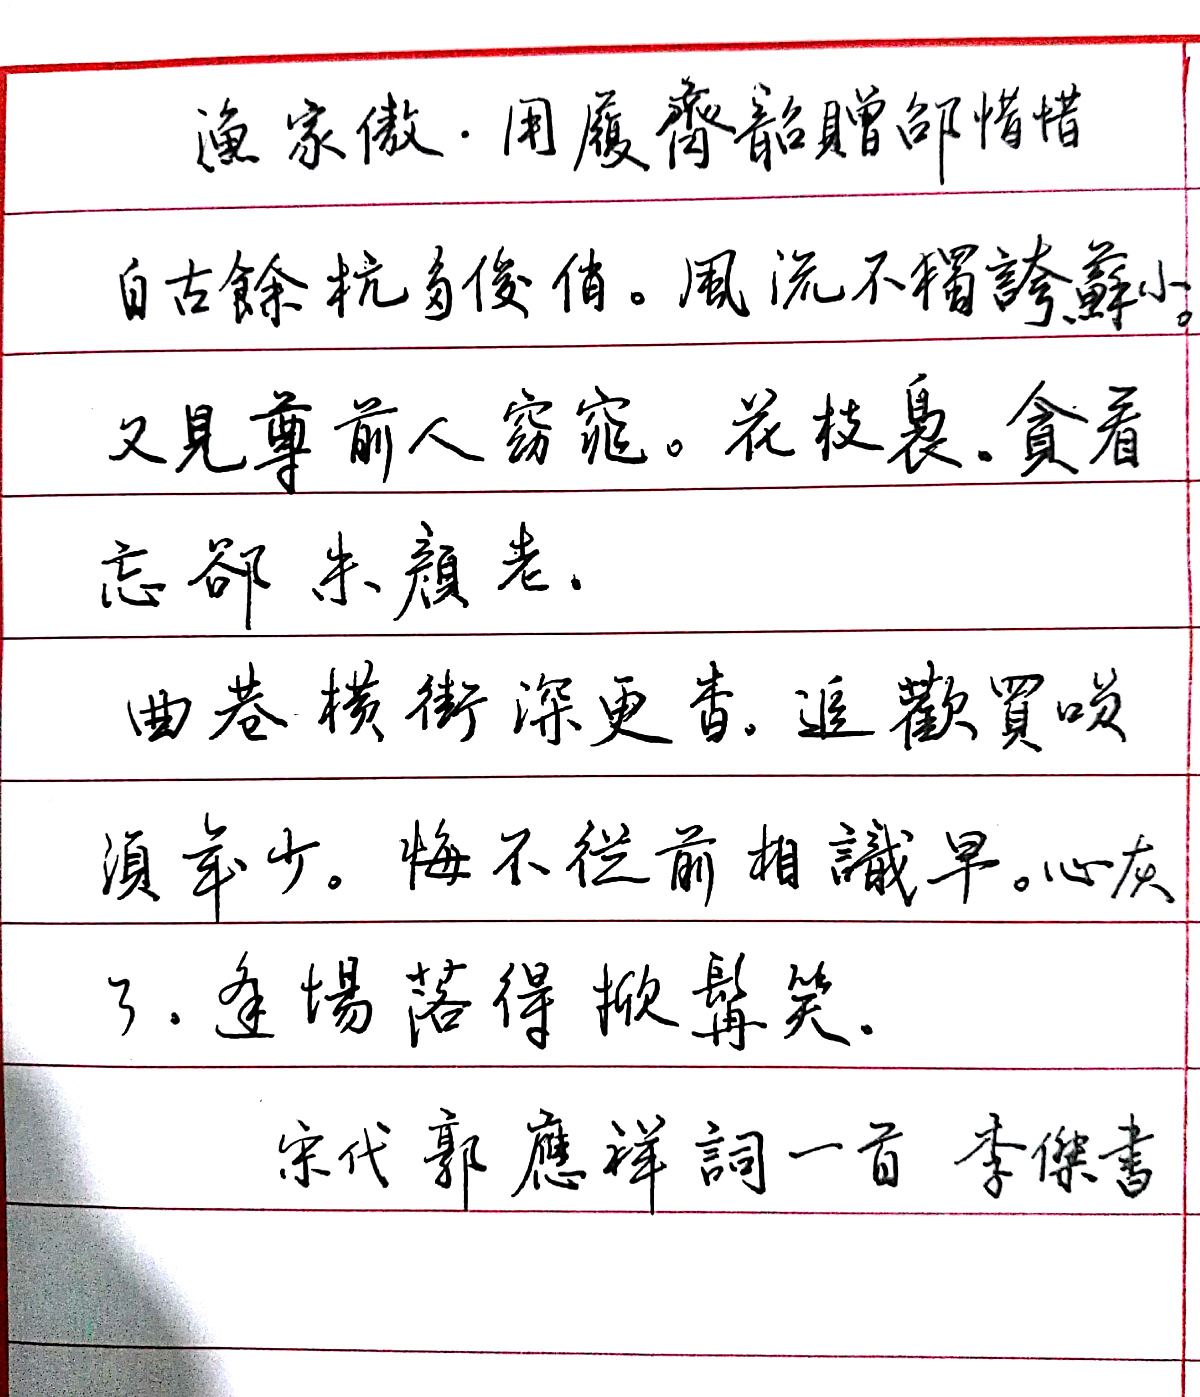 漁家傲·用履齋韶贈邵惜惜
自古餘杭多俊俏。風流不獨誇蘇小。
又見尊前人窈窕。花枝裊。貪看
忘卻朱顏老。
曲巷橫街深更杳。追歡買笑
須年少。悔不從前相識早。心灰
了。逢場落得掀髯笑。
宋代郭應祥詞一首 李傑書